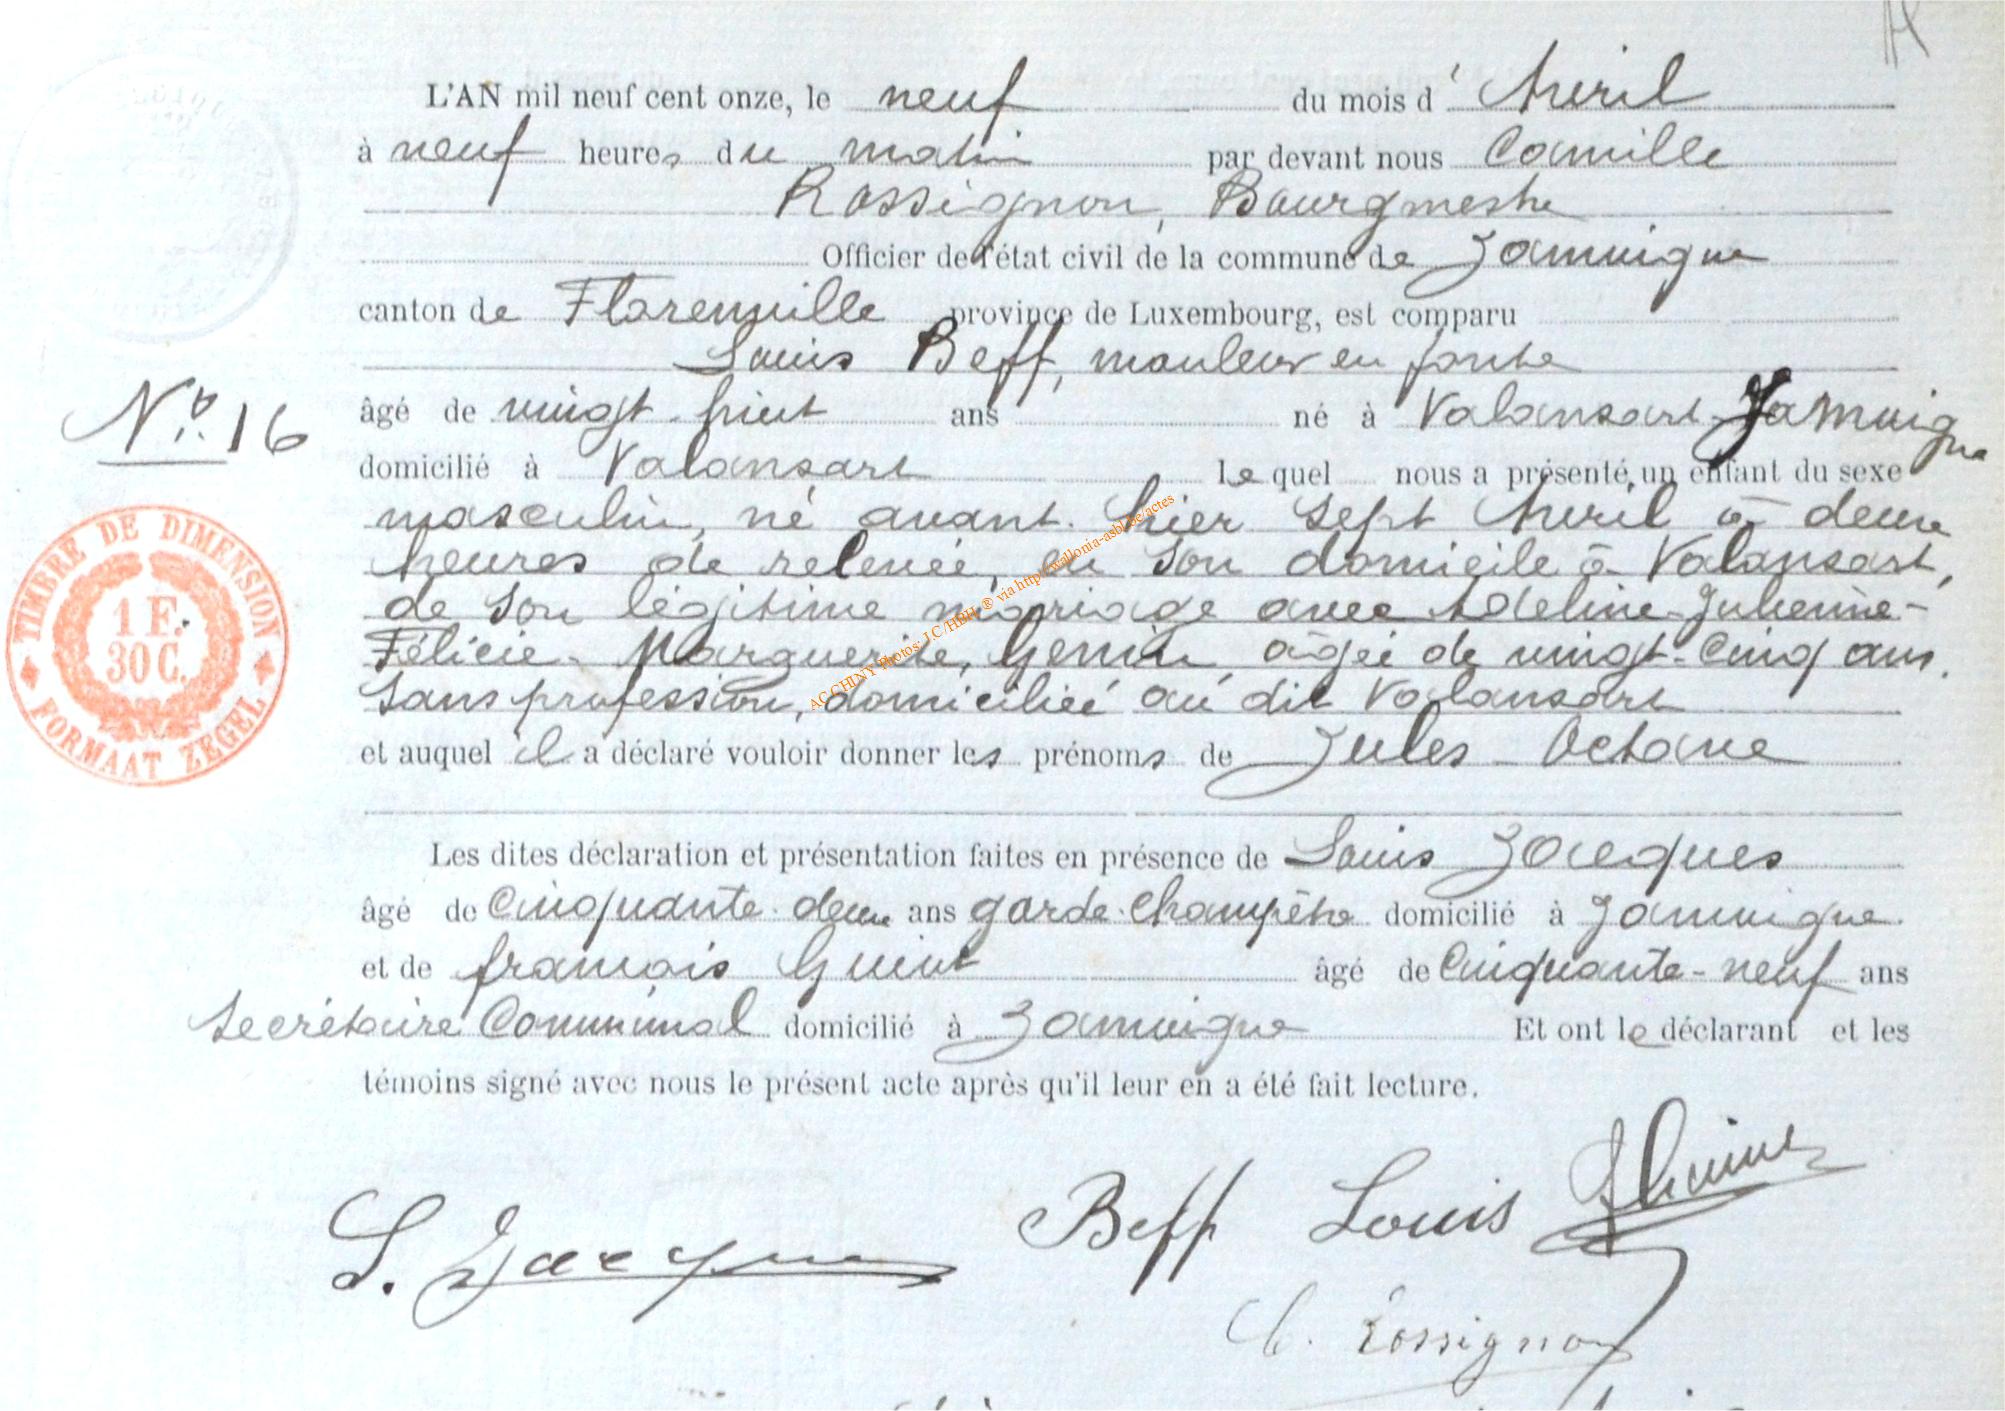 L'AN mil neuf cent onze, le neuf du mois d'Avril
à neuf heures du matin par devant nous Camille
Rossignon, Bourgmestre
Officier de l'état civil de la commune de Jamoigne
canton de Florenville province de Luxembourg, est comparu
Louis Beff, mouleur en fonte
N° 16
âgé de vingt-huit ans né à Valansart-Jamoigne
domicilié à Valansart Le quel nous a présenté un enfant du sexe
masculin, né avant-hier sept Avril à deux
heures de relevée, en son domicile à Valansart,
de son légitime mariage avec Adeline-Julienne-
Félicie-Marguerite, Genin âgée de vingt-cinq ans,
sans profession, domiciliée au dit Valansart
et auquel il a déclaré vouloir donner les prénoms de Jules-Octave
Les dites déclaration et présentation faites en présence de Louis Jacques
âgé de cinquante-deux ans garde-champêtre domicilié à Jamoigne
et de françois Guiot âgé de cinquante-neuf ans
Secrétaire Communal domicilié à Jamoigne Et ont le déclarant et les
témoins signé avec nous le présent acte après qu'il leur en a été fait lecture.
L. Jacques Beff Louis
C. Rossignon
TIMBRE DE DIMENSION
1 F.
30 C.
FORMAAT ZEGEL
AC CHINY Photos: J.C/HBH ® via http://wallonia-asbl.be/actes